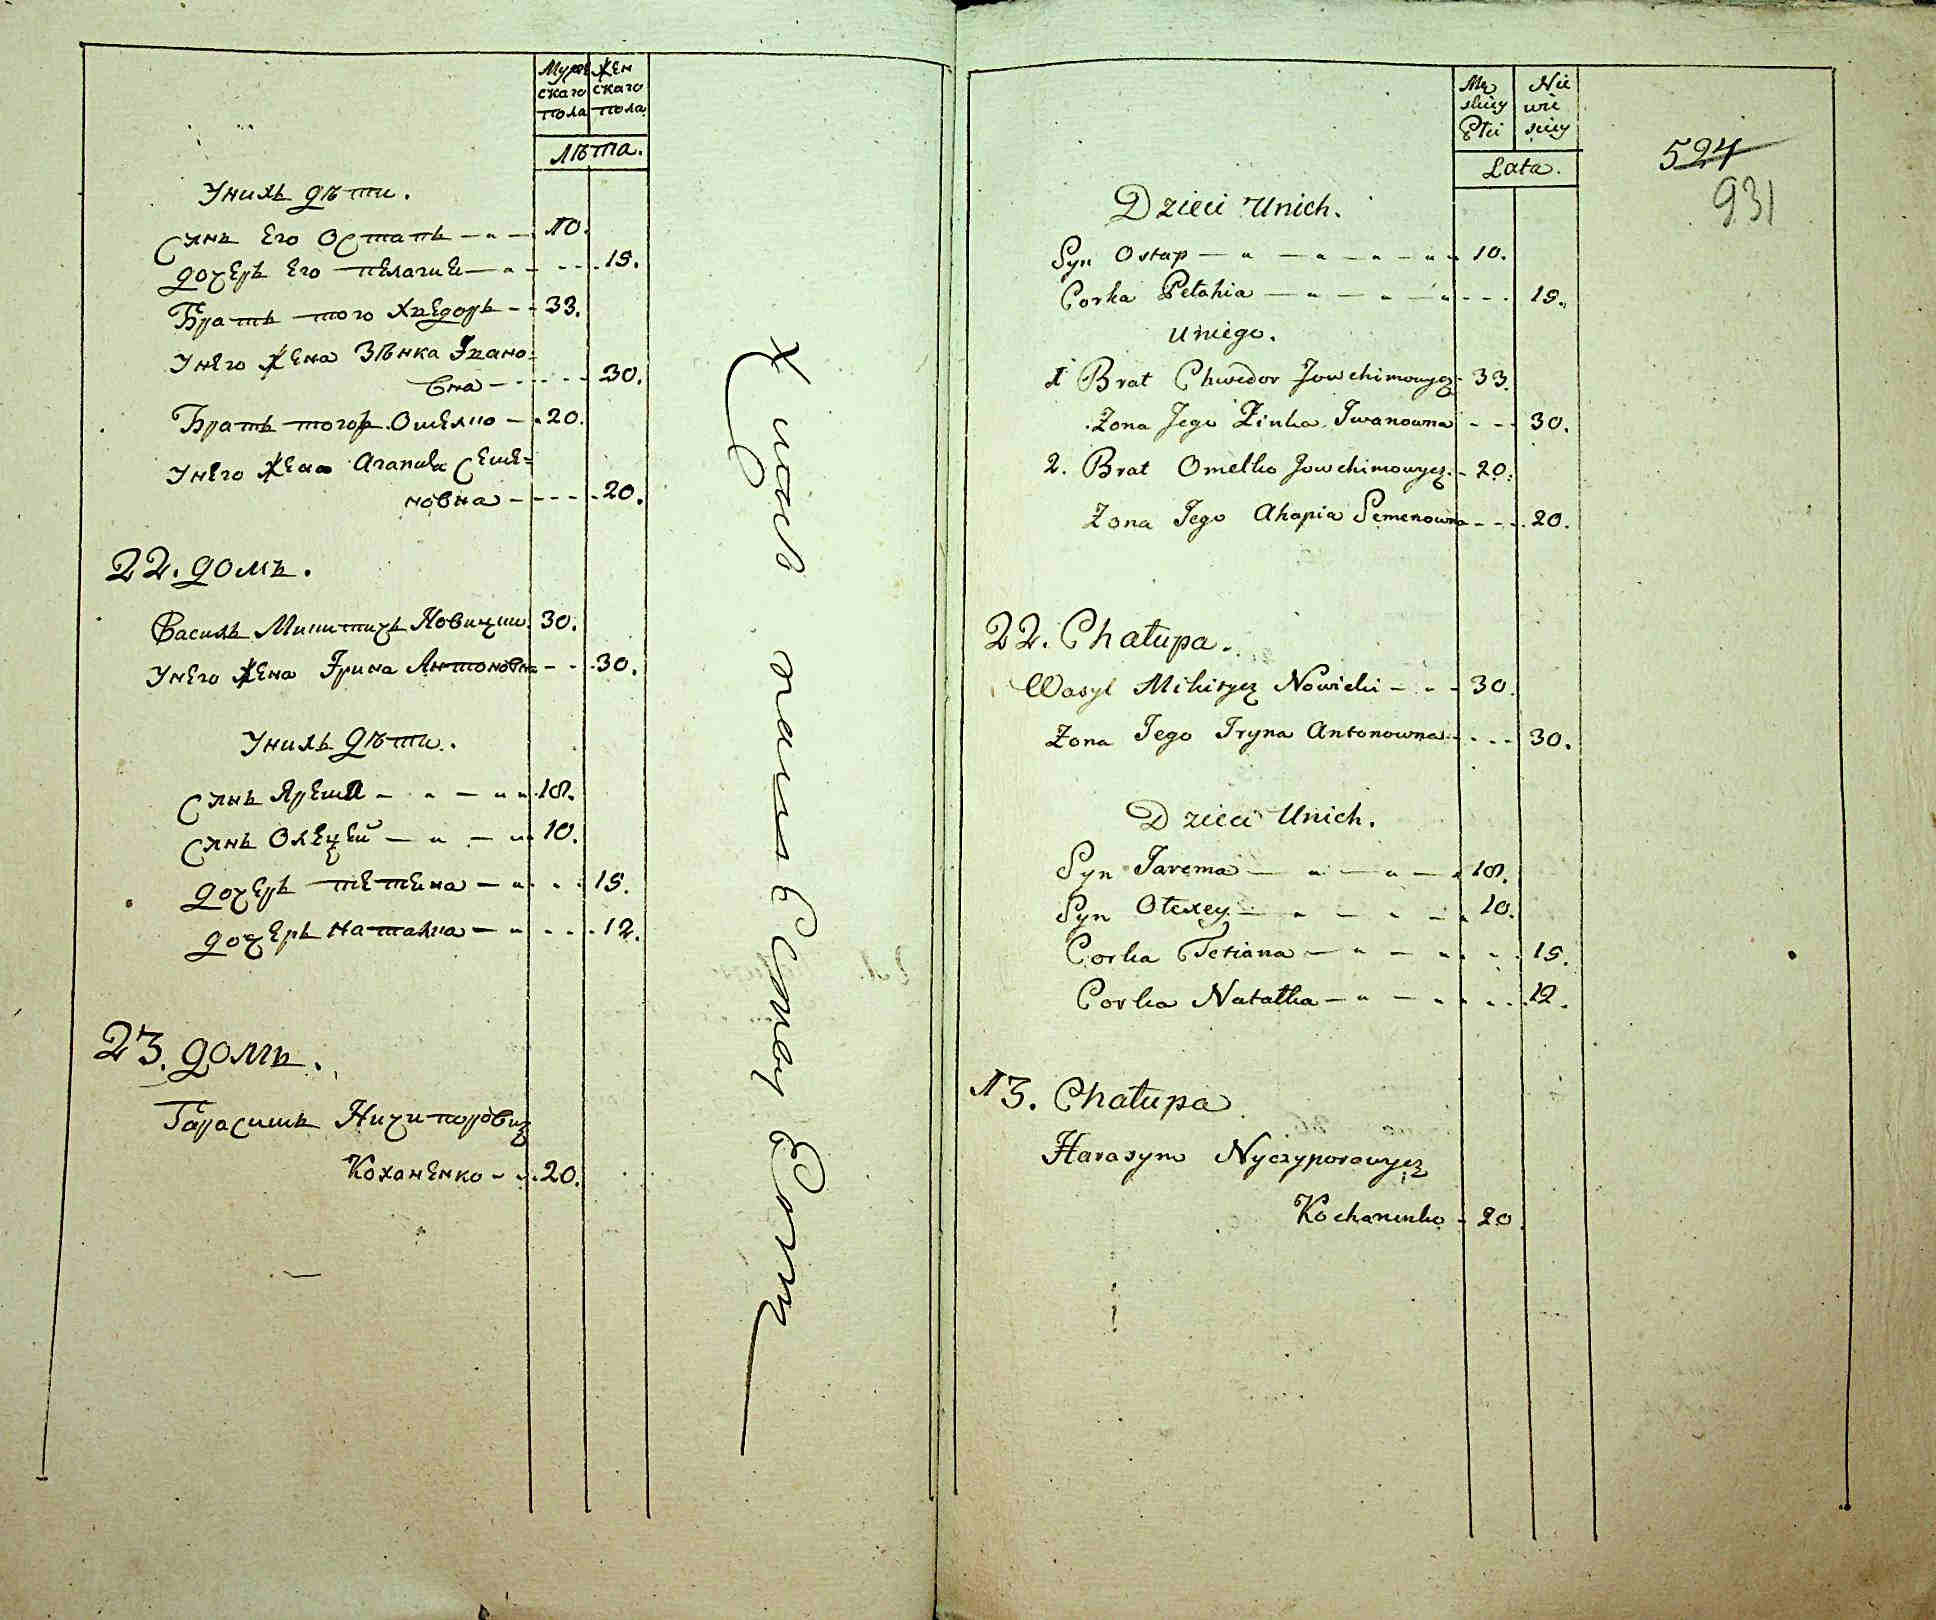 Мужескаго пола
Женскаго пола
Лѣта.
Унихъ дѣти.
Сынъ Его Остапъ 10.
дочеръ Его пелагие 15.
Братъ того Хведоръ 33.
Унего Жена Зѣнка Ивано=
вна 30.
Братъ тогож Омелко 20.
Унего Жена Агапия Семе=
новна 20.
22. домъ.
Василь Микитичъ Новицки. 30.
Унего Жена Ирина Антоновна 30.
Унихъ Дѣти.
Сынъ Ярема 18.
Сынъ Олецей 10.
дочеръ тетиена 15.
дочеръ Наталка 12.
23. домъ.
Гарасимъ Ничипорович
Коханенко 20.
Męskiey Płci
Niewieściey
Lata.
524
931
Dzieci Unich.
Syn Ostap 10.
Corka Pełahia 15.
Uniego.
1 Brat Chwedor Jowchimowycz 33.
Żona Jego Zinka Iwanowna 30.
2. Brat Omelko Jowchimowycz. 20.
Żona Jego Ahapia Semenowna 20.
22. Chałupa.
Wasyl Mikitycz Nowicki 30.
Żona Jego Iryna Antonowna 30.
Dzieci Unich.
Syn Jarema 18.
Syn Ołexey 10.
Corka Tetiana 15.
Corka Natałka 12.
13. Chałupa
Harasym Nyczyporowycz
Kochanenko 20.